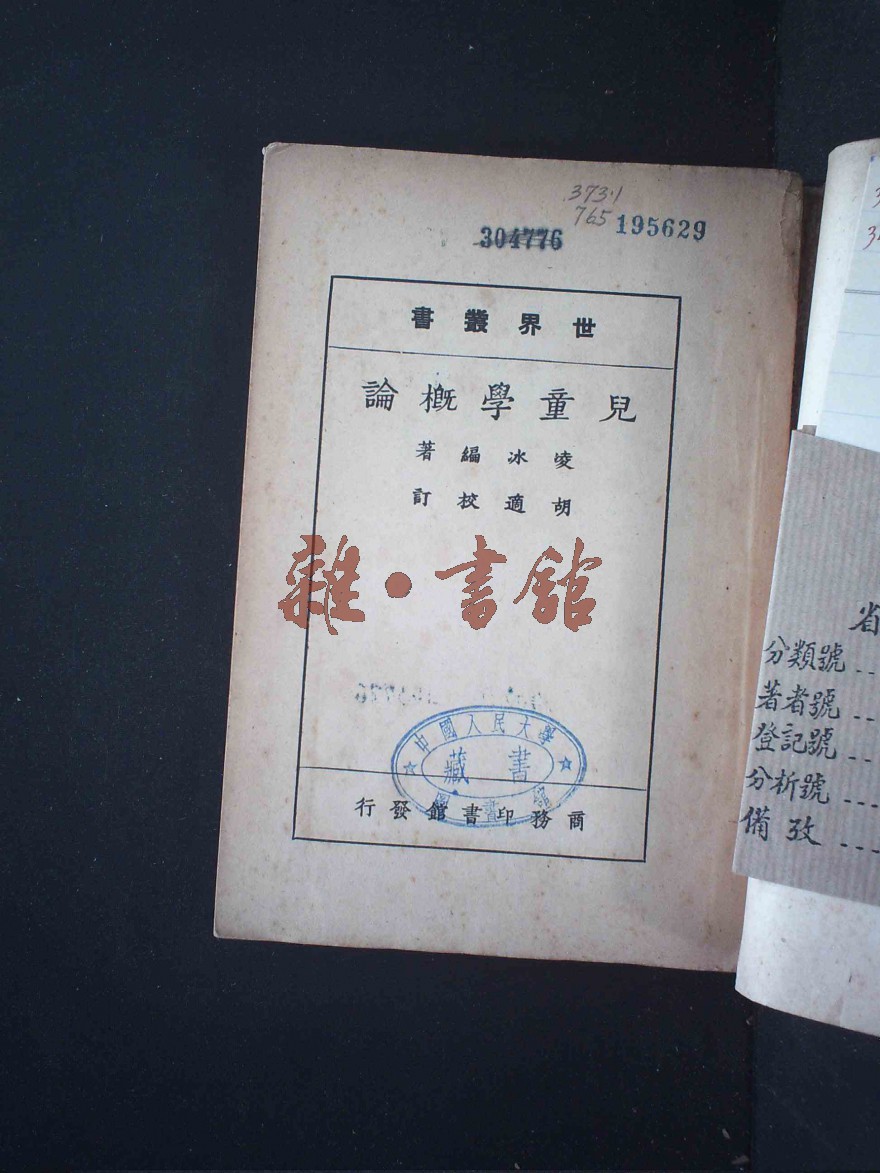 373·1
765
195629
304776
世界叢書
兒童學概論
凌冰編著
胡適校訂
雜·書館
中國人民大學
藏書
圖書館
商務印書館發行
省
分類號
著者號
登記號
分析號
備攷